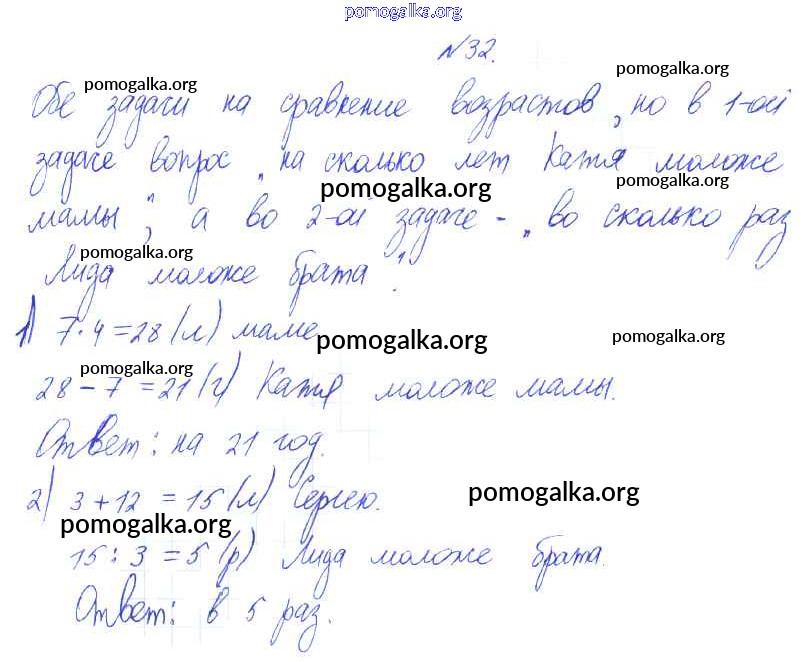 pomogalka.org
№32.
pomogalka.org pomogalka.org
Обе задачи на сравнение возрастов, но в 1-ой
задаче вопрос „на сколько лет Катя моложе
pomogalka.org pomogalka.org
мамы", а во 2-ой задаче - „во сколько раз
pomogalka.org
Лида моложе брата".
1) 7·4=28 (л) маме
pomogalka.org pomogalka.org
pomogalka.org
28-7=21 (г) Катя моложе мамы.
Ответ: на 21 год.
2) 3+12=15 (л) Сергею.
pomogalka.org
pomogalka.org
15:3=5 (р) Лида моложе брата.
Ответ: в 5 раз.